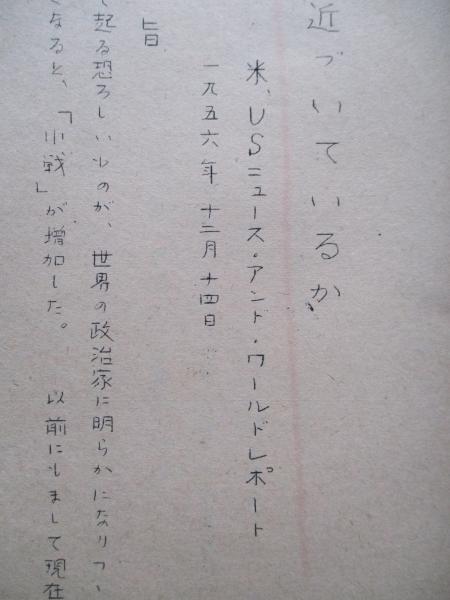 近づいているか
米、USニュース・アンド・ワールドレポート
一九五六年 十二月 十四日
旨
て起る恐ろしいものが、世界の政治家に明らかになりつゝ
くなると、「小戦」が増加した。 以前にもまして現在